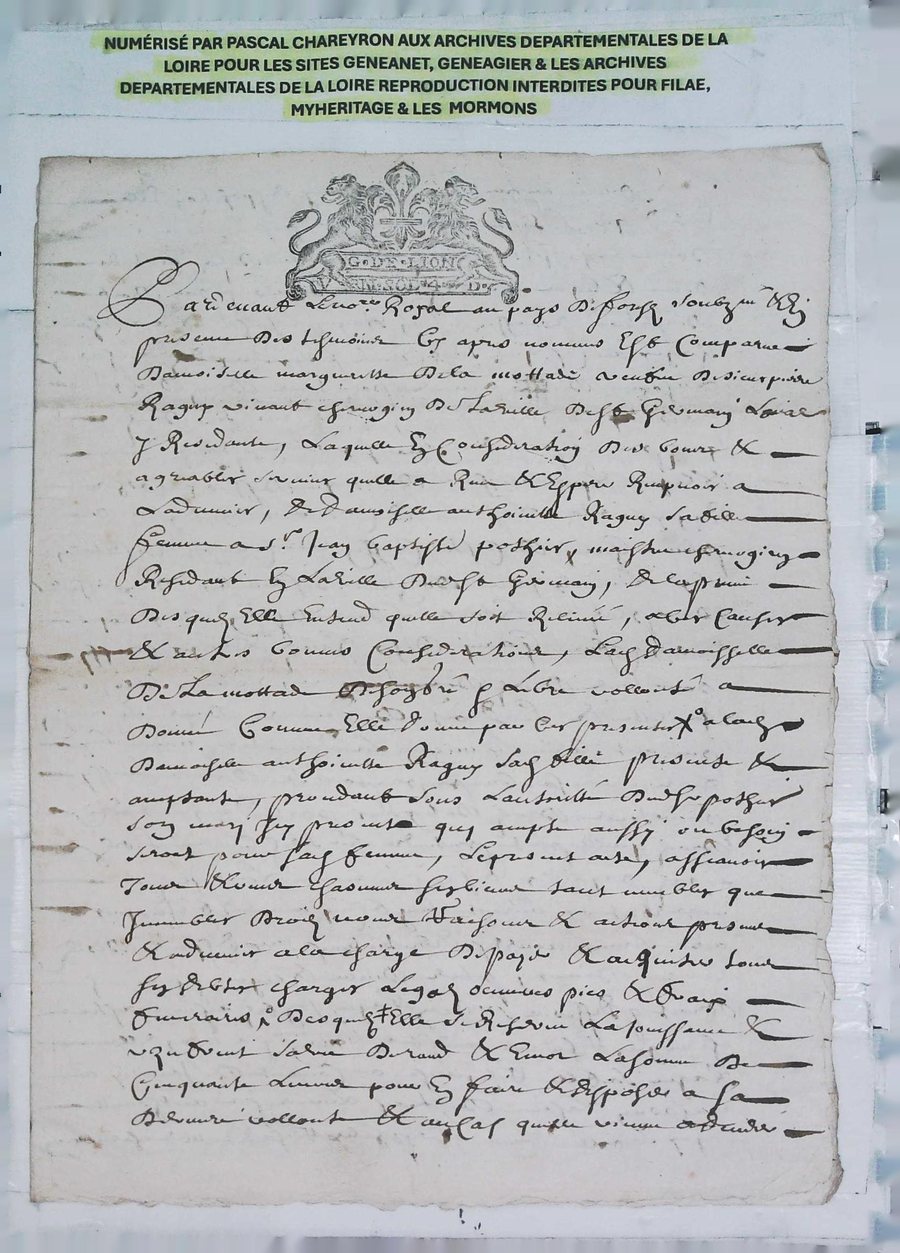 NUMÉRISÉ PAR PASCAL CHAREYRON AUX ARCHIVES DEPARTEMENTALES DE LA
LOIRE POUR LES SITES GENEANET, GENEAGIER & LES ARCHIVES
DEPARTEMENTALES DE LA LOIRE REPRODUCTION INTERDITES POUR FILAE,
MYHERITAGE & LES MORMONS
G·DE·LION
SOL·4·D·
Pardevant le no.re Royal au pays de forez soubzné & En
presence des tesmoins cy apres nommes Est Comparue
damoiselle margueritte de la mottade veufve de sieur pierre
Raguy vivant chirurgien de la ville de St Germain Laval
y Residante, Laquelle En Consideration des bons &
agreables services quelle a Receu & Espere Recepvoir a
Ladvenir, de damoiselle anthoinette Raguy sa fille
femme a sr Jean baptiste pothier, maistre chirurgien
Residant En la ville dudt St Germain, de la preuve
desquels Elle Entend quelle soit Relevée, a ces Causes
& autres bonnes Considerations, Lad damoiselle
de La mottade de son gré & libre vollonté a
donné Comme Elle donne par ces presentes a lad
damoiselle anthoinette Raguy sad fille presente &
acceptante, procedant sous Lauthorité dudt sr pothier
son mary Icy present qui accepte aussy ou besoin
seroit pour sad femme, le present acte, assavoir
Tous & uns chacuns ses biens tant meubles que
Immeubles droits noms Raisons & actions presens
& advenir a la charge de payer & acquitter tous
ses debtes charges Legatz oeuvres pies & fraix
funeraires desquels Elle se Reserve La Jouissance &
uzufruit sa vie durand & Encor La somme de
Cinquante Livres pour En faire & disposer a sa
derniere vollonté & au cas quelle vienne a deceder